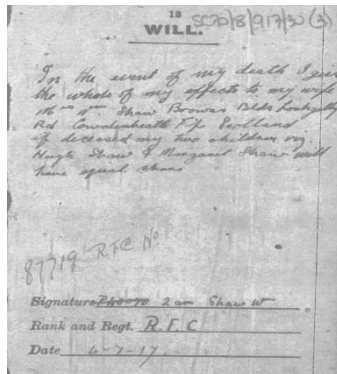 13
SC70/8/917/30 (3)
WILL.
In the event of my death I give
the whole of my effects to my wife
Mrs Wm Shaw Browns Bldgs Lochgelly
Rd Cowdenbeath Fife Scotland
if deceased my two children viz.
Hugh Shaw & Margaret Shaw will
have equal share
87719 RFC No
Signature 2 am Shaw W
Rank and Regt. R.F.C
Date 6-7-17.